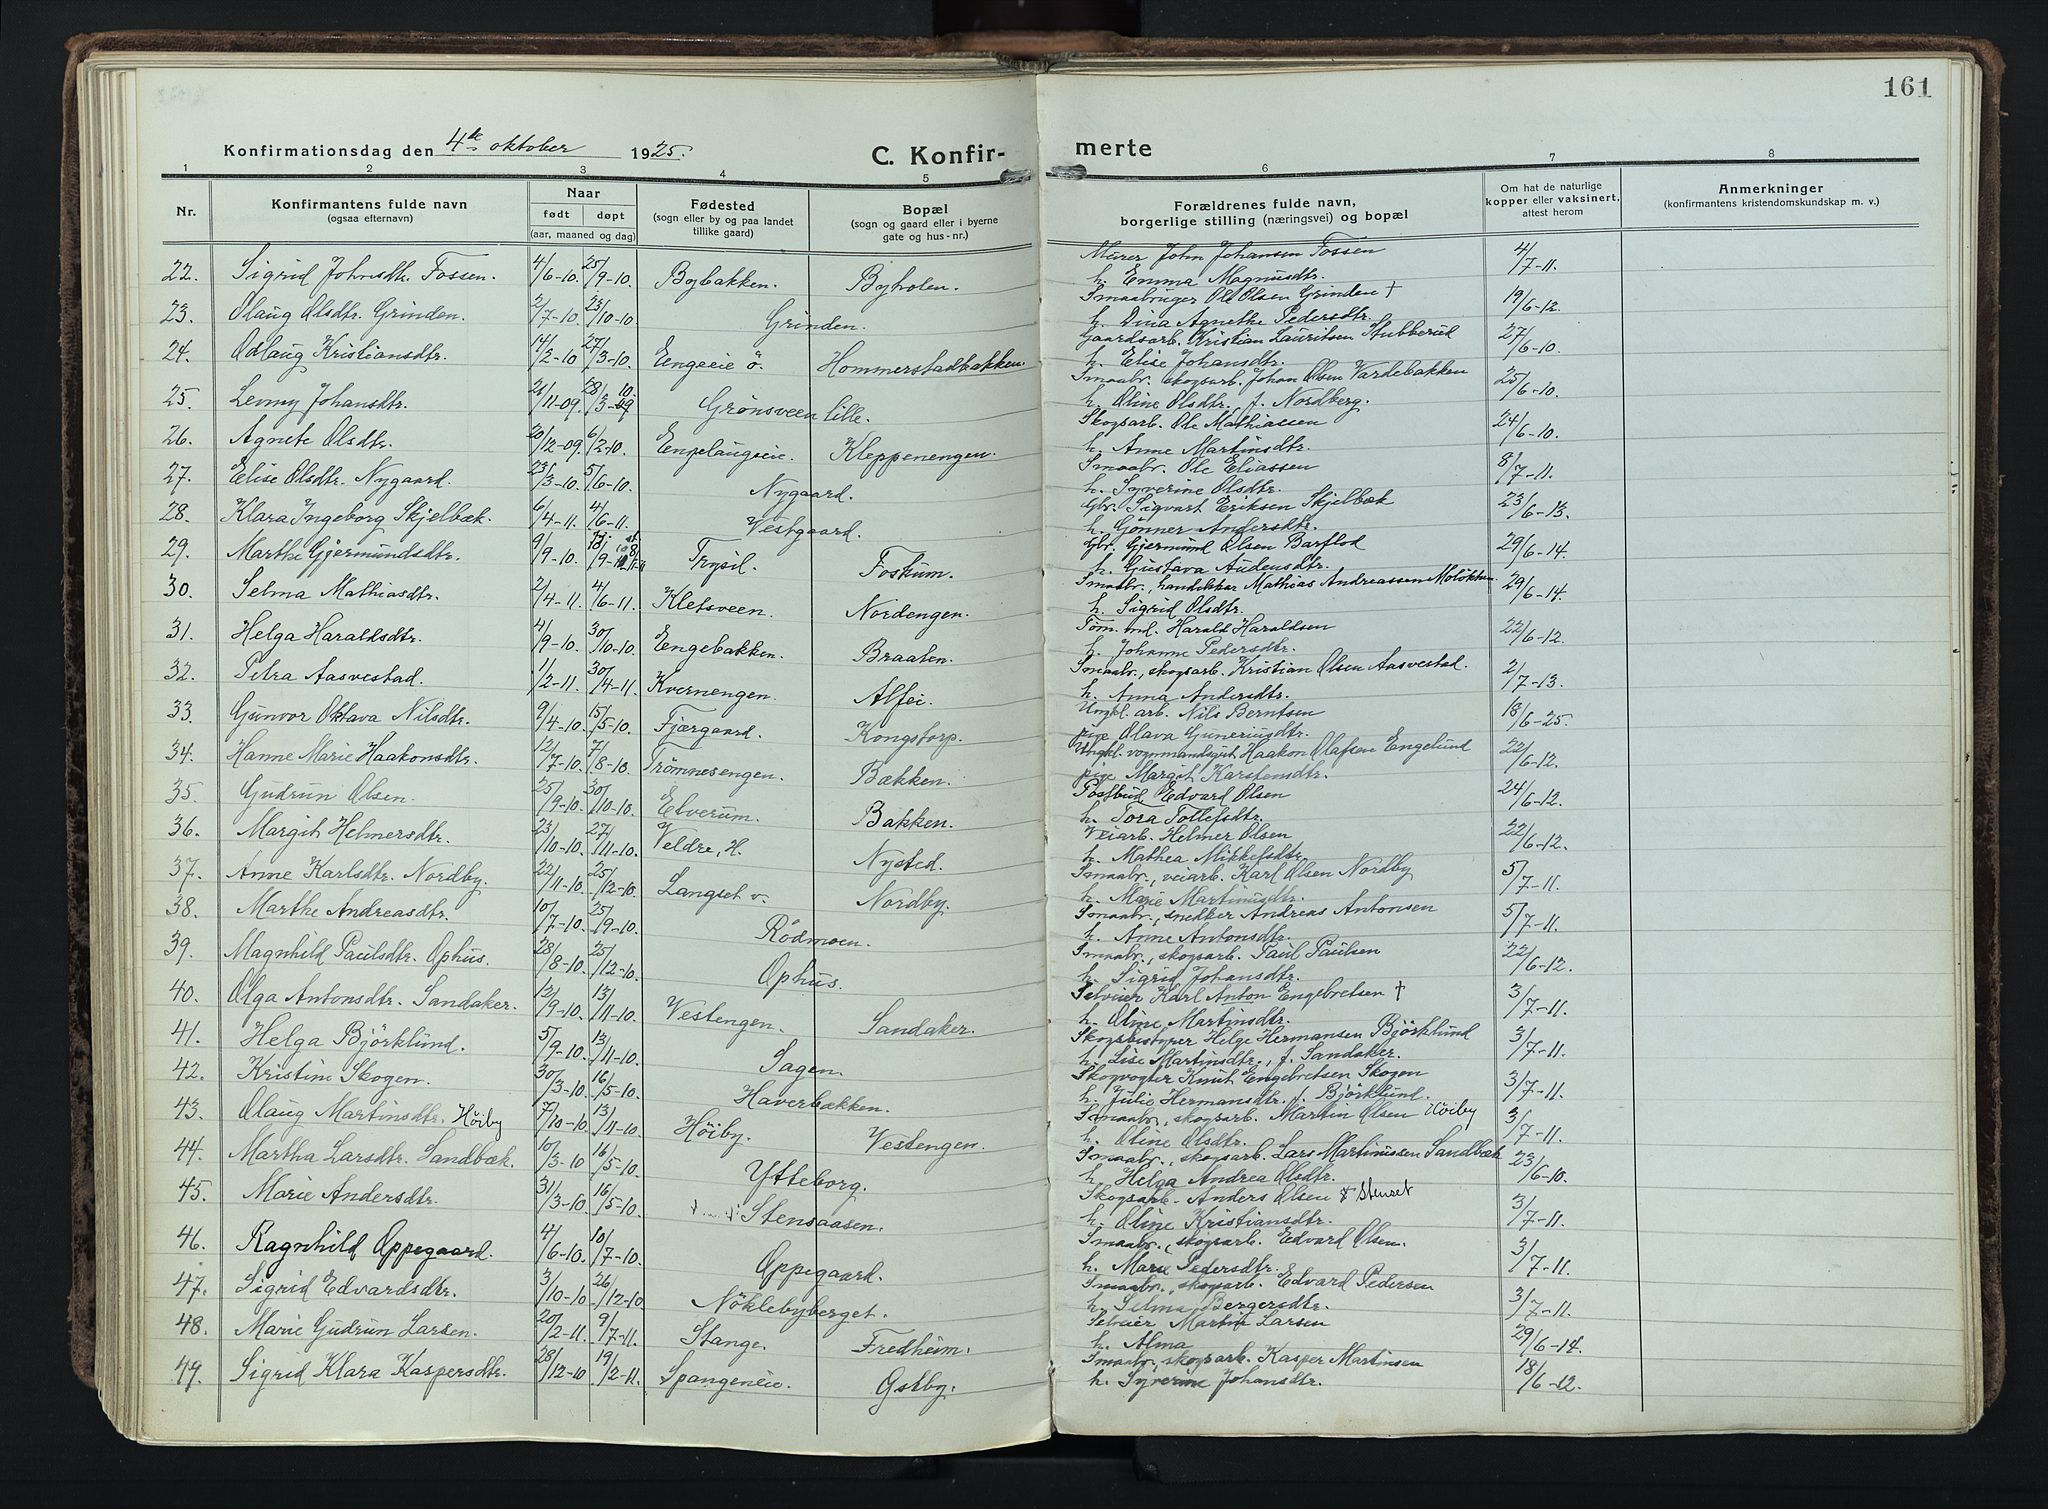 161
Konfirmationsdag den 4de oktober 1925. C. Konfir- merte
1 2 3 4 5 6 7 8
Nr. Konfirmantens fulde navn (ogsaa efternavn) Naar født døpt (aar, maaned og dag) Fødested (sogn eller by og paa landet tillike gaard) Bopæl (sogn og gaard eller i byerne gate og hus-nr.) Forældrenes fulde navn, borgerlige stilling (næringsvei) og bopæl Om hat de naturlige kopper eller vaksinert, attest herom Anmerkninger (konfirmantens kristendomskundskap m. v.)
22. Sigrid Johnsdtr. Fossen. 4/6-10. 25/9-10. Bybakken. Byholen. Murer John Johansen Fossen 4/7-11.
h. Emma Magnusdtr.
23. Olaug Olsdtr. Grinden. 2/7-10. 23/10-10. Grinden. Smaabruger Ole Olsen Grinden † 19/6-12.
h. Dina Agnethe Pedersdtr.
24. Odlaug Kristiansdtr. 14/2-10 27/3-10. Engeeie ö. Hommerstadbakken. Gaardsarb. Kristian Lauritsen Stubberud 27/6-10.
h. Elise Johansdtr.
25. Lenny Johansdtr. 21/11-09. 28/3-10. Grönsveen lille. Smaabr. skogsarb. Johan Olsen Vardebakken 25/6-10.
h. Oline Olsdtr., f. Nordberg.
26. Agnete Olsdtr. 20/12-09. 6/2-10. Engelaugeie. Kleppenengen. Skogsarb. Ole Mathiassen 24/6-10.
h. Anne Martinsdtr.
27. Elise Olsdtr. Nygaard. 23/3-10. 5/6-10. Nygaard. Smaabr. Ole Eliassen 8/7-11.
h. Syverine Olsdtr.
28. Klara Ingeborg Skjelbæk. 6/4-11. 4/6-11. Vestgaard. Gbr. Sigvart Eriksen Skjelbæk 23/6-13.
h. Gönner Andersdtr.
29. Marthe Gjermundsdtr. 9/9-10. Trysil. Foskum. Gbr. Gjermund Olsen Barflod 29/6-14.
h. Gustava Audensdtr.
30. Selma Mathiasdtr. 2/4-11. 4/6-11. Kletsveen. Nordengen. Smaabr., handelskar Mathias Andreassen Moløkken 29/6-14.
h. Sigrid Olsdtr.
31. Helga Haraldsdtr. 4/9-10. 30/10-10. Engebakken. Braaten. Töm. md. Harald Haraldsen 22/6-12.
h. Johanne Pedersdtr.
32. Petra Aasvestad. 1/2-11. 30/4-11. Kvernengen. Alfei. Smaabr., skogsarb. Kristian Olsen Aasvestad. 2/7-13.
h. Anna Andersdtr.
33. Gunvor Oktava Nilsdtr. 9/4-10. 15/5-10. Fjærgaard. Kongstorp. Ungkl. arb. Nils Berntsen 18/6-25.
pige Olava Guneriusdtr.
34. Hanne Marie Haakonsdtr. 12/7-10. 7/8-10. Trömnesengen. Bækken. Ungkl. vognmandsgut Haakon Olafsen Engelund 22/6-12.
pige Margit Karstensdtr.
35. Gudrun Olsen. 25/9-10. 30/10-10. Elverum. Bakken. Postbud Edvard Olsen 24/6-12.
h. Tora Tollefsdtr.
36. Margit Helmersdtr. 23/10-10. 27/11-10. Veldre, H. Nysted. Veiarb. Helmer Olsen 22/6-12.
h. Mathea Mikkelsdtr.
37. Anne Karlsdtr. Nordby. 22/11-10. 25/12-10. Langset v. Nordby. Smaabr., veiarb. Karl Olsen Nordby 5/7-11.
h. Marie Martinusdtr.
38. Marthe Andreasdtr. 10/7-10. 25/9-10. Rödmoen. Smaabr., snedker Andreas Antonsen 5/7-11.
h. Anne Antonsdtr.
39. Magnhild Paulsdtr. Ophus. 28/8-10. 25/12-10. Ophus. Smaabr., skogsarb. Paul Paulsen 22/6-12.
h. Sigrid Johansdtr.
40. Olga Antonsdtr. Sandaker. 12/9-10. 13/11-10. Vestengen. Sandaker. Selveier Karl Anton Engebretsen † 3/7-11.
h. Oline Martinsdtr.
41. Helga Björklund. 5/9-10. 13/11-10. Sagen. Skogsbestyrer Helge Hermansen Björklund 3/7-11.
h. Lise Martinsdtr., f. Sandaker.
42. Kristine Skogen. 30/3-10. 16/5-10. Haverbækken. Skogvogter Knut Engebretsen Skogen 3/7-11.
h. Julie Hermansdtr. f. Björklund.
43. Olaug Martinsdtr. Höiby 7/10-10 13/11-10. Höiby. Vestengen. Smaabr., skogsarb. Martin Olsen Höiby 3/7-11.
h. Oline Olsdtr.
44. Martha Larsdtr. Sandbæk. 10/3-10 16/5-10. Ytteborg. Smaabr., skogsarb. Lars Martinussen Sandbæk 23/6-10.
h. Helga Andrea Olsdtr.
45. Marie Andersdtr. 31/3-10. 16/5-10. Stensaasen. Skogsarb. Anders Olsen Stenset 3/7-11.
h. Oline Kristiansdtr.
46. Ragnhild Oppegaard. 4/6-10. 10/7-10. Oppegaard. Smaabr., skogsarb. Edvard Olsen. 3/7-11.
h. Marie Pedersdtr.
47. Sigrid Edvardsdtr. 3/10-10 26/12-10. Nöklebyberget. Smaabr., skogsarb. Edvard Pedersen 3/7-11.
h. Selma Bergersdtr.
48. Marie Gudrun Larsen. 20/2-11. 9/7-11. Stange. Fredheim. Selveier Martin Larsen 29/6-14.
h. Alma
49. Sigrid Klara Kaspersdtr. 28/12-10 19/2-11. Spangeneie. Gstby. Smaabr., skogsarb. Kasper Martinsen 18/6-12.
h. Syverine Johansdtr.